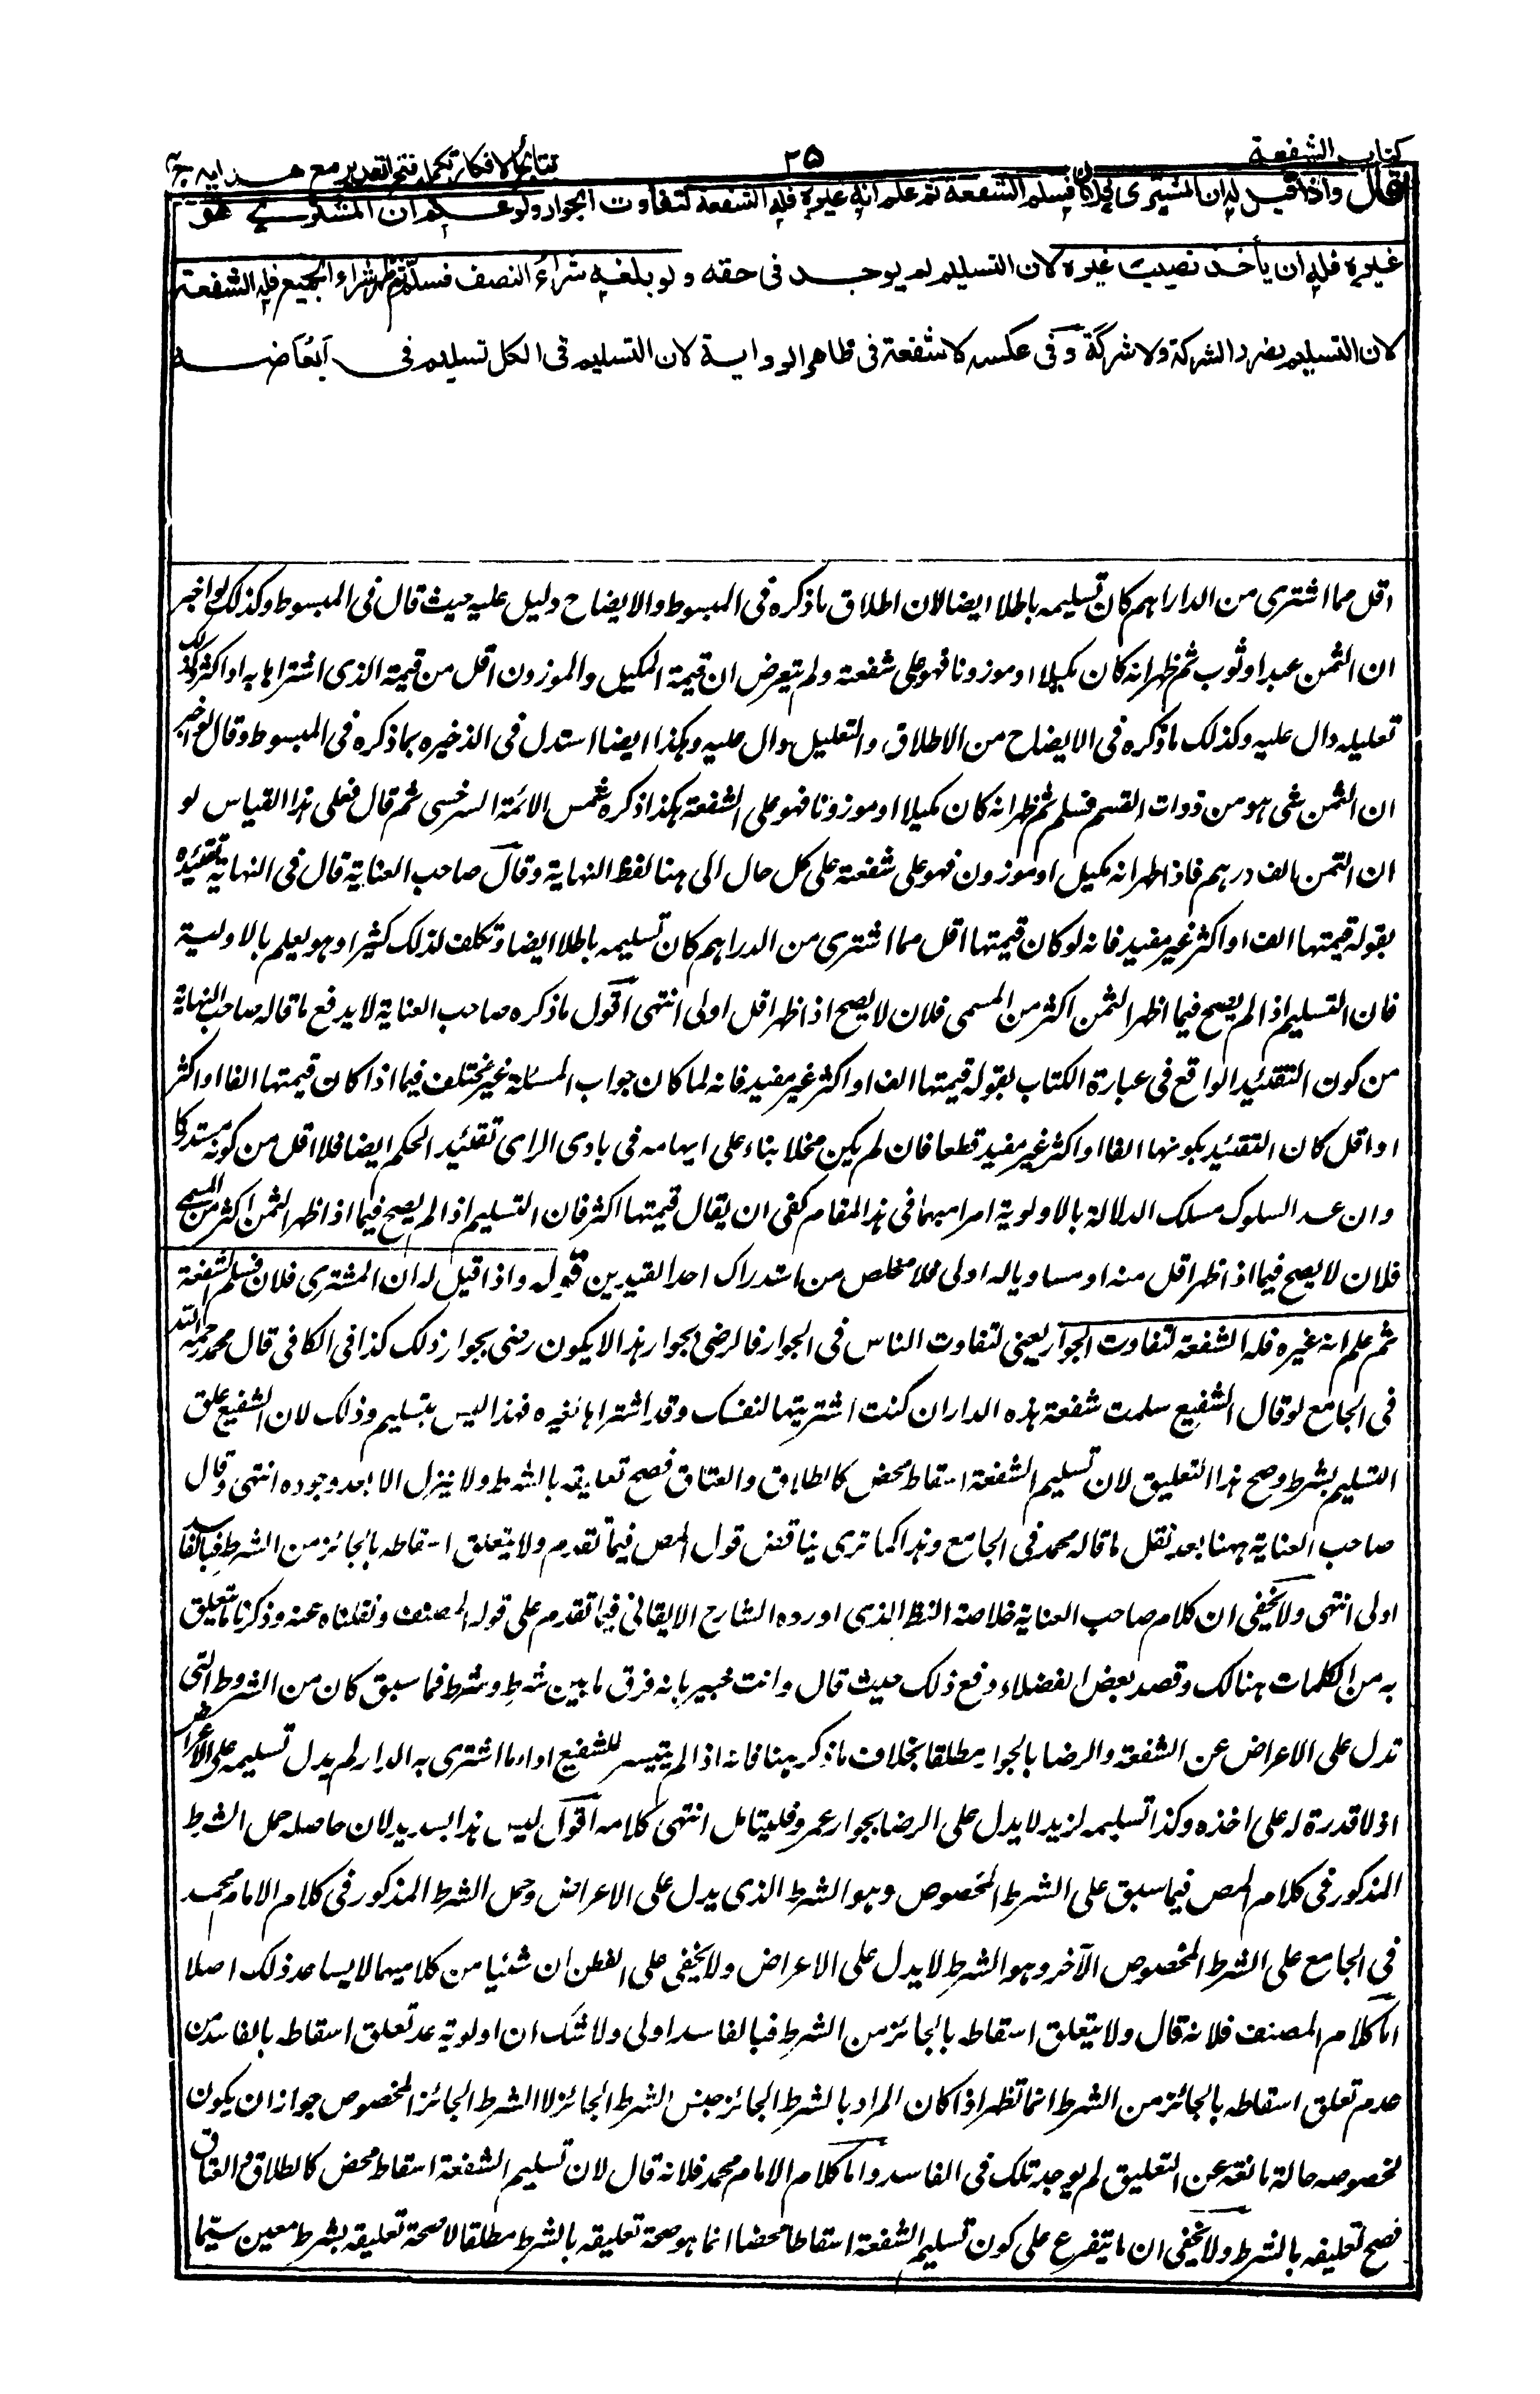 كتاب الشفعة
٢٥
نتائج الافكار تكملة فتح القدير مع هدايه ج
قال واذا قيل له ان المشترى فلان فسلم الشفعة ثم علم انه غيره فله الشفعة لتفاوت الجوار ولو علم ان المشترى هو
غيره فله ان يأخذ نصيب غيره لان التسليم لم يوجد فى حقه ولو بلغه شراء النصف فسلم ثم ظهر شراء الجميع فله الشفعة
لان التسليم لضرر الشركة ولا شركة وفى عكسه لا شفعة فى ظاهر الرواية لان التسليم فى الكل تسليم فى ابعاضه
اقل مما اشترى من الدراهم كان تسليمه باطلا ايضا لان اطلاق ما ذكره فى المبسوط والايضاح دليل عليه حيث قال فى المبسوط وكذلك لو اخبر
ان الثمن عبد او ثوب ثم ظهر انه كان مكيلا او موزونا فهو على شفعته ولم يتعرض ان قيمة المكيل والموزون اقل من قيمة الذى اشتراها به او اكثر وكذلك
تعليله دال عليه وكذلك ما ذكره فى الايضاح من الاطلاق والتعليل دال عليه وهكذا ايضا استدل فى الذخيره بما ذكره فى المبسوط وقال لو اخبر
ان الثمن شئ هو من ذوات القسم فسلم ثم ظهر انه كان مكيلا او موزونا فهو على الشفعة هكذا ذكره شمس الائمة السرخسى ثم قال فعلى هذا القياس لو
ان الثمن الف درهم فاذا ظهر انه مكيل او موزون فهو على شفعته على كل حال الى هنا لفظ النهاية وقال صاحب العناية قال فى النهاية تقئيده
بقوله قيمتها الف او اكثر غير مفيد فانه لو كان قيمتها اقل مما اشترى من الدراهم كان تسليمه باطلا ايضا وتكلف لذلك كثيرا وهو يعلم بالاولية
فان التسليم اذا لم يصح فيما اظهر الثمن اكثر من المسمى فلان لا يصح اذا ظهر اقل اولى انتهى اقول ما ذكره صاحب العناية لا يدفع ما قاله صاحب النهاية
من كون التقئيد الواقع فى عبارة الكتاب بقوله قيمتها الف او اكثر غير مفيد فانه لما كان جواب المسئلة غير مختلف فيما اذا كان قيمتها الفا او اكثر
او اقل كان التقئيد بكونها الفا او اكثر غير مفيد قطعا فان لم يكن مخلا بناء على ايهامه فى بادى الراى تقئيد الحكم ايضا فلا اقل من كونه مستدركا
وان عد السلوك مسلك الدلالة بالاولوية امرا مبهما فى هذا المقام كفى ان يقال قيمتها اكثر فان التسليم اذا لم يصح فيما اذا ظهر الثمن اكثر من المسمى
فلان لا يصح فيما اذا ظهر اقل منه او مساويا له اولى فلا مخلص من استدراك احد القيدين قوله واذا قيل له ان المشترى فلان فسلم الشفعة
ثم علم انه غيره فله الشفعة لتفاوت الجوار يعنى لتفاوت الناس فى الجوار فالرضى بجوار هذا لا يكون رضى بجوار ذلك كذا فى الكافى قال محمد رحمه الله
فى الجامع لو قال الشفيع سلمت شفعة هذه الدار ان كنت اشتريتها لنفسك وقد اشتراها لغيره فهذا ليس بتسليم وذلك لان الشفيع علق
التسليم بشرط وصح هذا التعليق لان تسليم الشفعة اسقاط محض كالطلاق والعتاق فصح تعليقه بالشرط ولا ينزل الا بعد وجوده انتهى وقال
صاحب العناية ههنا بعد نقل ما قاله محمد فى الجامع وهذا كما ترى يناقض قول المص فيما تقدم ولا يتعلق اسقاطه بالجائز من الشرط فبالفاسد
اولى انتهى ولا يخفى ان كلام صاحب العناية خلاصة النظر الذى اورده الشارح الاتقانى فيما تقدم على قول المصنف ونقلناه عنه وذكرنا ما يتعلق
به من الكلمات هنالك وقصد بعض الفضلاء دفع ذلك حيث قال وانت خبير بانه فرق ما بين شرط وشرط فما سبق كان من الشروط التى
تدل على الاعراض عن الشفعة والرضا بالجوار مطلقا بخلاف ما ذكر ههنا فانه اذا لم يتيسر للشفيع اداء ما اشترى به الدار لم يدل تسليمه على الاعراض
اذ لا قدرة له على اخذه وكذا تسليمه لزيد لا يدل على الرضا بجوار عمرو فليتامل انتهى كلامه اقول ليس هذا بسديد لان حاصله حمل الشرط
المذكور فى كلام المص فيما سبق على الشرط المخصوص وهو الشرط الذى يدل على الاعراض وحمل الشرط المذكور فى كلام الامام محمد
فى الجامع على الشرط المخصوص الآخر وهو الشرط لا يدل على الاعراض ولا يخفى على الفطن ان شئيا من كلاميهما لا يساعد ذلك اصلا
اما كلام المصنف فلانه قال ولا يتعلق اسقاطه بالجائز من الشرط فبالفاسد اولى ولا شك ان اولوية عد تعلق اسقاطه بالفاسد من
عدم تعلق اسقاطه بالجائز من الشرط انما تظهر اذا كان المراد بالشرط الجائز جنس الشرط الجائز لا الشرط الجائز المخصوص جواز ان يكون
لخصوصه حالة مانعة عن التعليق لم يوجد تلك فى الفاسد واما كلام الامام محمد فلانه قال لان تسليم الشفعة اسقاط محض كالطلاق والعتاق
فصح تعليقه بالشرط ولا يخفى ان ما يتفرع على كون تسليم الشفعة اسقاطا محضا انما هو صحة تعليقه بالشرط مطلقا لا صحة تعليقه بشرط معين سيما